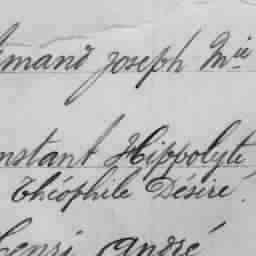 Armand Joseph Mie
Constant Hippolyte
Théophile Désiré.
Henri André